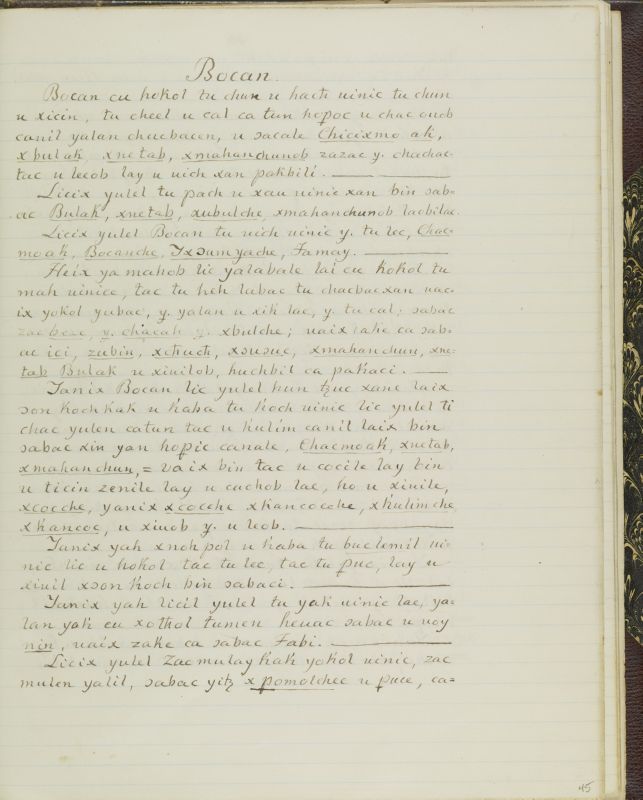 Bocan.
Bocan cu hokol tu chun u hach uinic tu chun
u xicin, tu cheel u cal ca tun hopoc u chac ouob
canil yalan chacbacen, u ɔacale Chicixmo ak,
xbulak, xnetab, xmahanchunob zazac y. chachac-
tac u lecob lay u uich xan pakbili.
Licix yulel tu pach u xau uinic xan bin ɔab=
ac Bulak, xnetab, xubulche, xmahanchunob lacbilax.
Licix yulel Bocan tu uich uinic y. tu lec, Chac=
moak, Bocanche, Ixɔumyache, Tamay.
Heix ya mahob lic yalabale lai cu kokol tu
mah uinice, tac tu heh lubac tu chacbac xan uac-
ix yokol yubac, y. yalan u xik lae, y. tu cal; ɔabac
zac beze, y. chacah y. xbulche; uaix zake ca ɔab=
ac ici, zubin, xchuch, xɔuɔuc, xmahanchun, xne=
tab Bulak u xiuilob, huchbil ca pakaci.
Yanix Bocan lic yulel hun tzuc xane laix
ɔon koch kak u kaba tu koch uinic lic yulel ti
chac yulen catun tac u kulim canil laix bin
ɔabac xin yan hopic canale, Chacmoak, xnetab,
xmahanchun, = vaix bin tac u cocile lay bin
u ticin zenile lay u cuchob lae, ho u xiuile,
xcocche, yanix xcocche xkancocohe, xkulimche
xkancoc, u xiuob y. u leob.
Yanix yah xnoh pol u kaba tu buclemil ui-
nic lic u hokol tac tu lec, tac tu puc, lay u
xiuil xɔon koch bin ɔabaci.
Yanix yah licil yulel tu yak uinic lae, ya=
lan yak cu xothol tumen heuac ɔabac u uoy
nin, uaix zake ca ɔabac Tabi.
Licix yulel Zacmulay kak yokol uinic, zac
mulen yalil, ɔabac yitz xpomolchec u puce, ca=
45